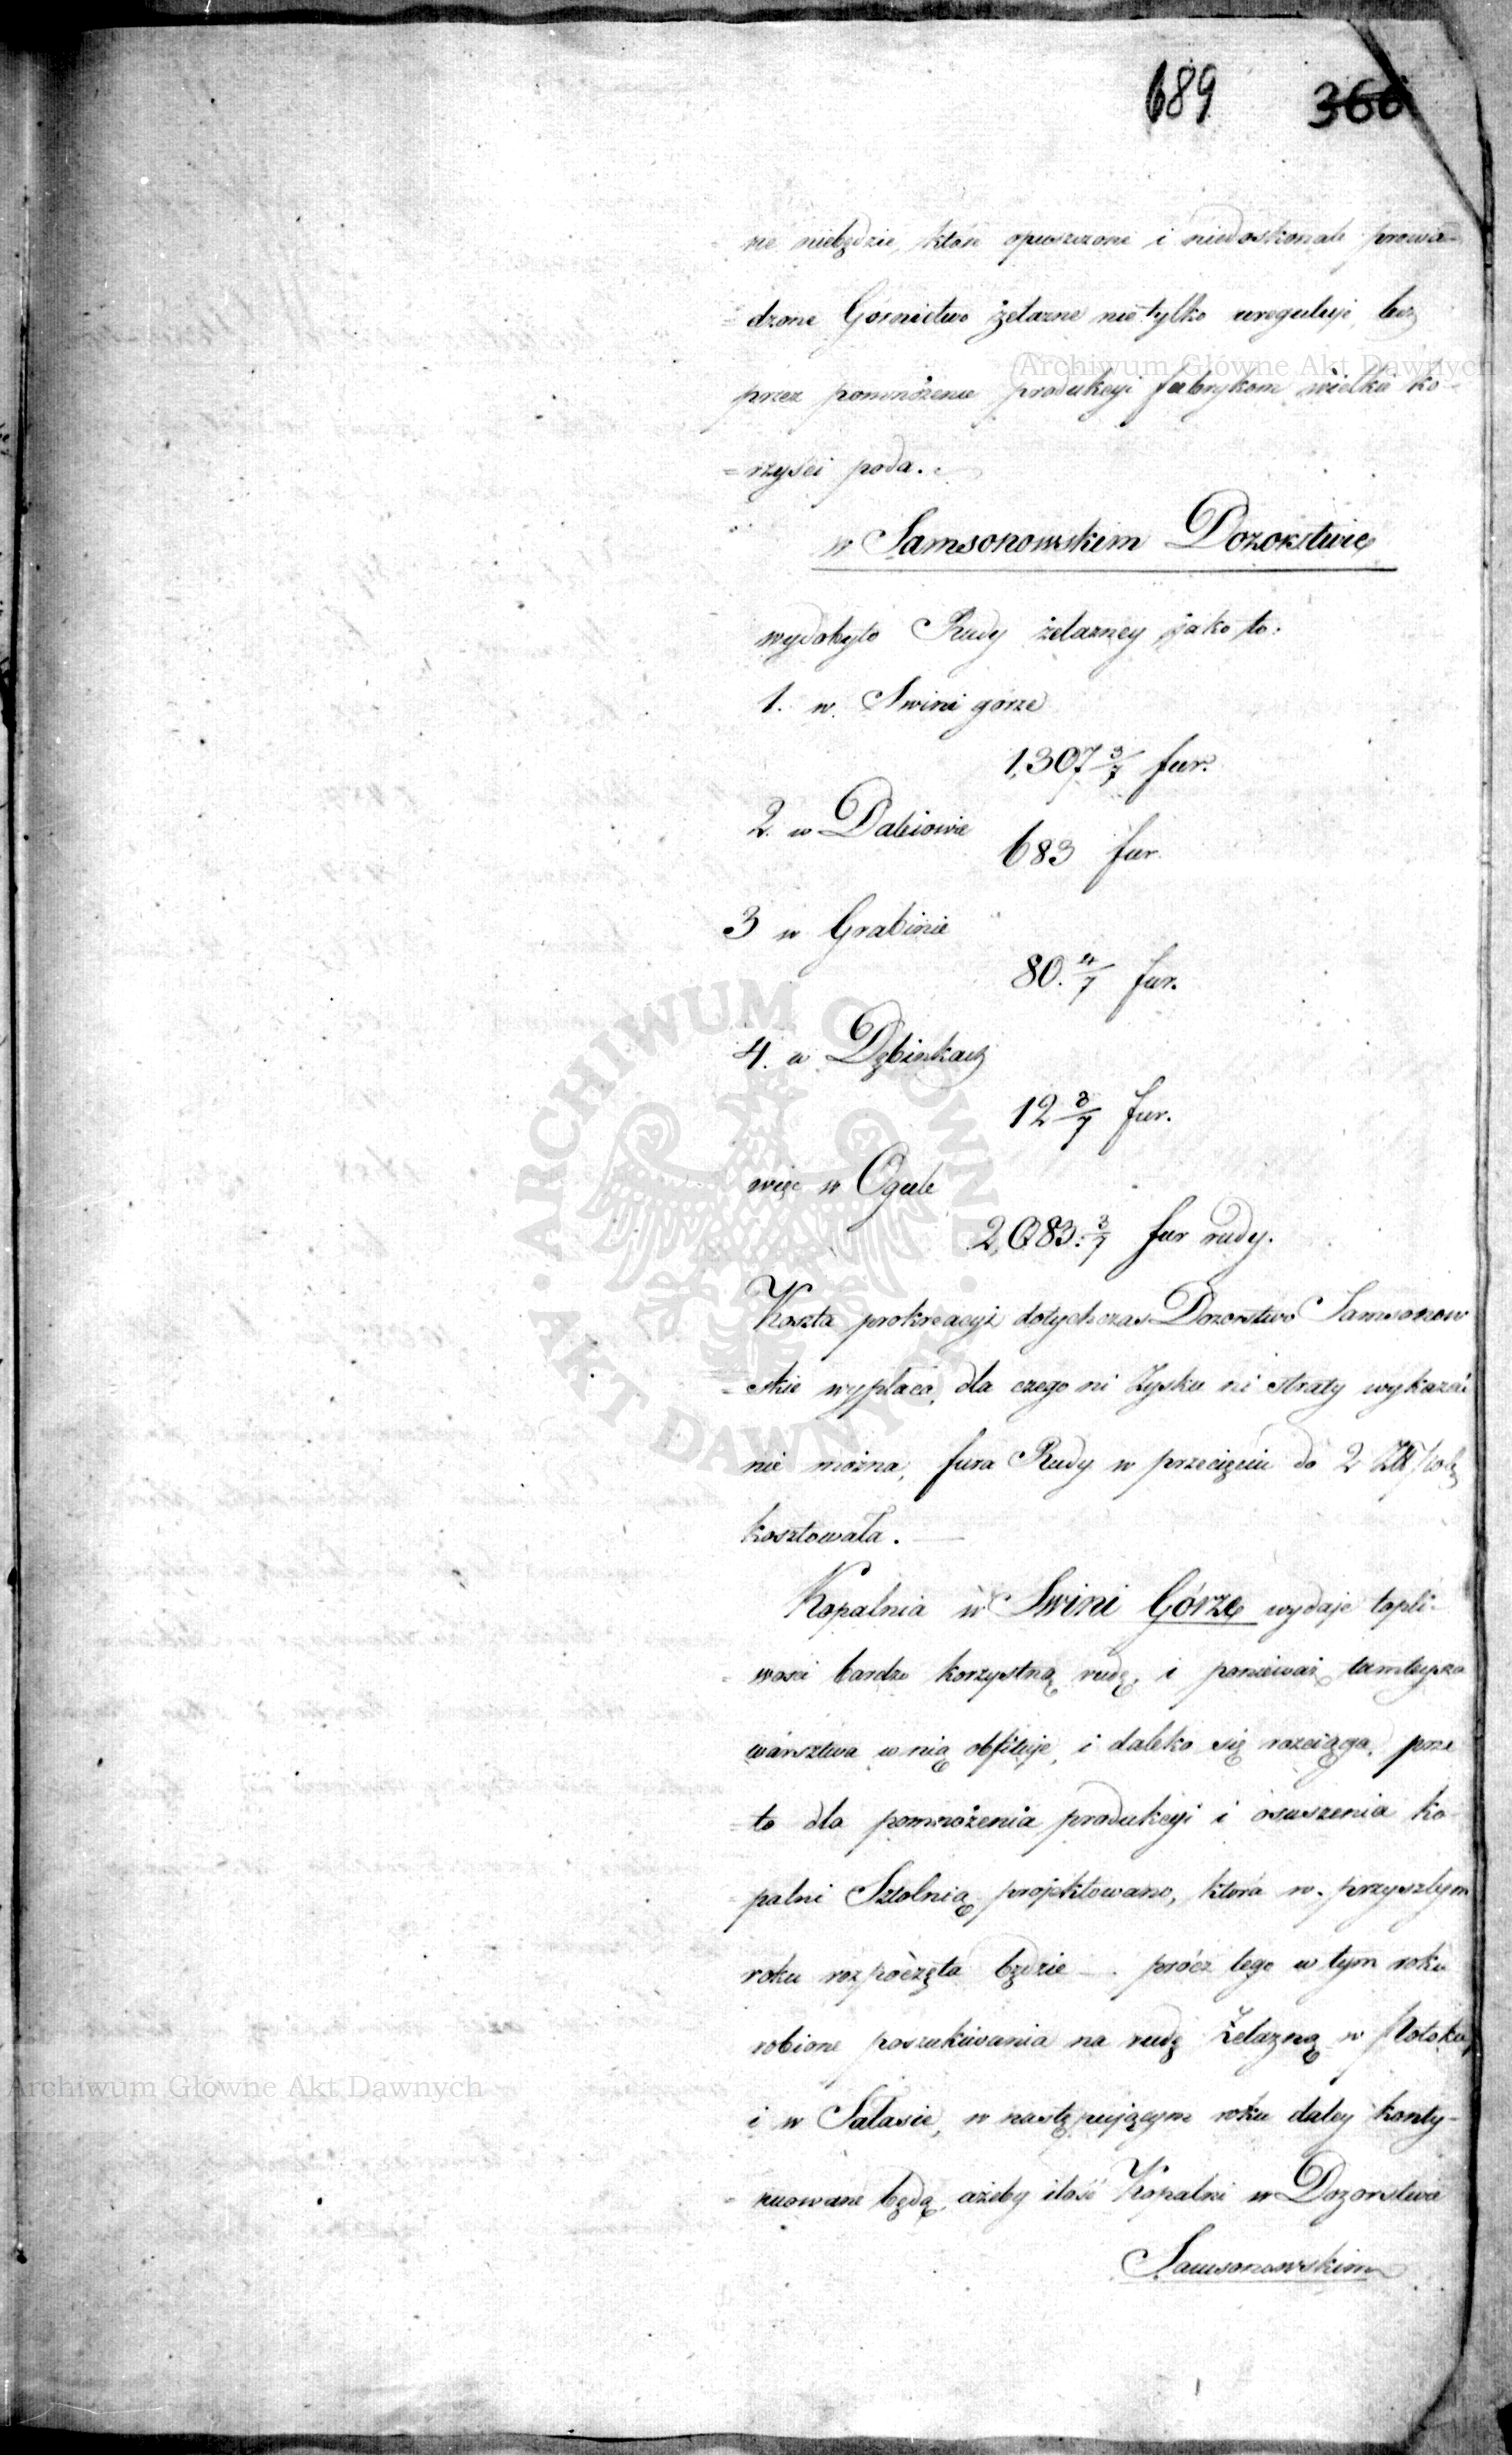 689 366
ne niebędzie, które opuszczone i niedoskonale prowa=
=dzone Górnictwo żelazne nie tylko ureguluje, lecz
Archiwum Główne Akt Dawnych
przez pomnożenie produkcyi fabrykom wielkie ko=
=rzyści poda.
w Samsonowskim Dozorstwie
wydobyto Rudy żelazney jako to:
1. w. Swini górze
1,307 3/7 fur.
2. w Daleiowie
683 fur.
3 w Grabinie
80. 4/7 fur.
4. w Dębinkach
12 3/7 fur.
więc w Ogule
2,083. 3/7 fur rudy.
Koszta prokreacyi dotychczas Dozorstwo Samsonow
=skie wypłaca, dla czego ni Zysku ni straty wykazać
nie można, fura Rudy w przecięciu do 2 
kosztowała.
Kopalnia w Swini Górze wydaje topli=
=wości bardzo korzystną rudę, i ponieważ tamteysza
warsztwa w nią obfituje, i daleko się rozciąga, prze
=to dla pomnożenia produkcyi i osuszenia ko=
palni Sztolnią projektowano, która w. przyszłym
roku rozpoczęta będzie —. prócz tego w tym roku
robione poszukiwania na rudę Żelazną w Potoku,
Archiwum Główne Akt Dawnych
i w Sałasie, w następującym roku daley konty=
=nuowane będą, ażeby ilość Kopalni w Dozorstwie
Samsonowskim
ARCHIWUM GŁÓWNE · AKT DAWNYCH ·